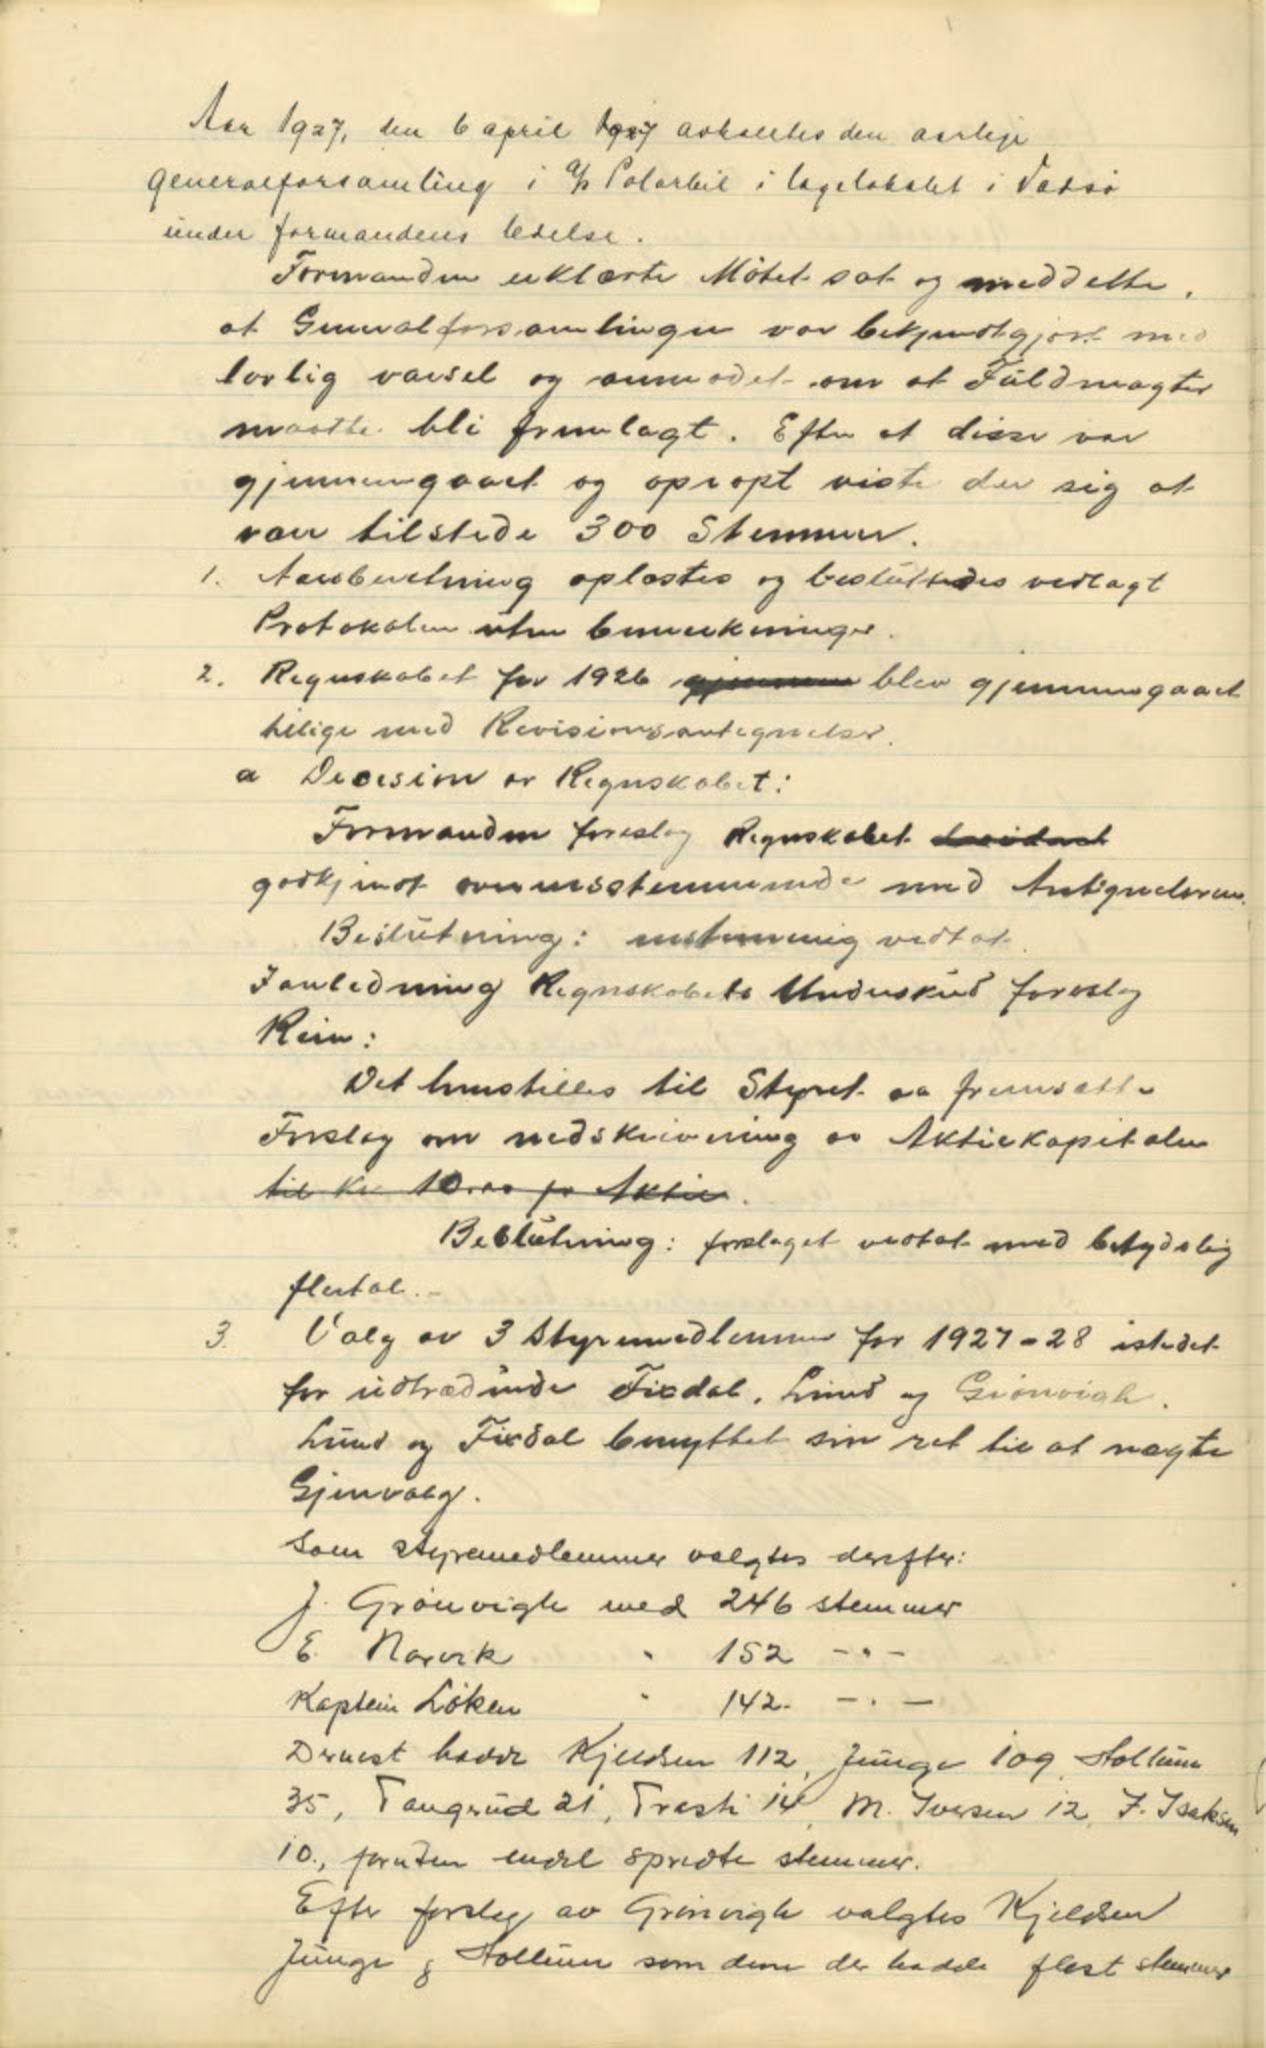 Aar 1927, den 6 april 1927 avholdtes den aarlige
generalforsamling i A/S Polarbil i lagelokalet i Vadsø
under formandens ledelse.
Formanden erklærte Møtet sat og meddelte,
at Generalforsamlingen var bekjendtgjort med
lovlig varsel og anmodet om at Fuldmagter
maatte bli fremlagt. Efter at disse var
gjennemgaaet og opropt viste der sig at
vær tilstede 300 Stemmer.
1. Aarsberetning oplæstes og besluttedes vedlagt
Protokolen uten bemerkninger.
2. Regnskabet for 1926 gjennem blev gjennemgaaet
tillige med Revisionsantegnelser.
a Decision av Regnskabet:
Formanden foreslog Regnskabet decidert
godkjendt overensstemmende med Antegnelserne.
Beslutning: enstemmig vedtat.
I anledning Regnskabets Underskud foreslog
Rein:
Det henstilles til Styret aa fremsætte
Forslag om nedskrivning av Aktiekapitalen
til Kr 10.00 pr Aktie.
Beslutning: forslaget vedtat med betydelig
flertal.-
3. Valg av 3 Styremedlemmer for 1927-28 istedet
for uttrædende Fixdal, Lund og Grönvigh.
Lund og Fixdal benyttet sin ret til at nægte
Gjenvalg.
Som styremedlemmer valgtes derefter:
J. Grönvigh med 246 stemmer
E. Norvik " 152 -"-
Kaptein Löken " 142 -"-
Dernest hadde Kjeldsen 112, Junge 109, Hollum
35, Tangrud 21, Trasti 14, M. Iversen 12, J. Isaksen
10., foruten endel spredte stemmer.
Efter forslag av Grönvigh valgtes Kjeldsen
Junge & Hollum som dem der hadde flest stemmer